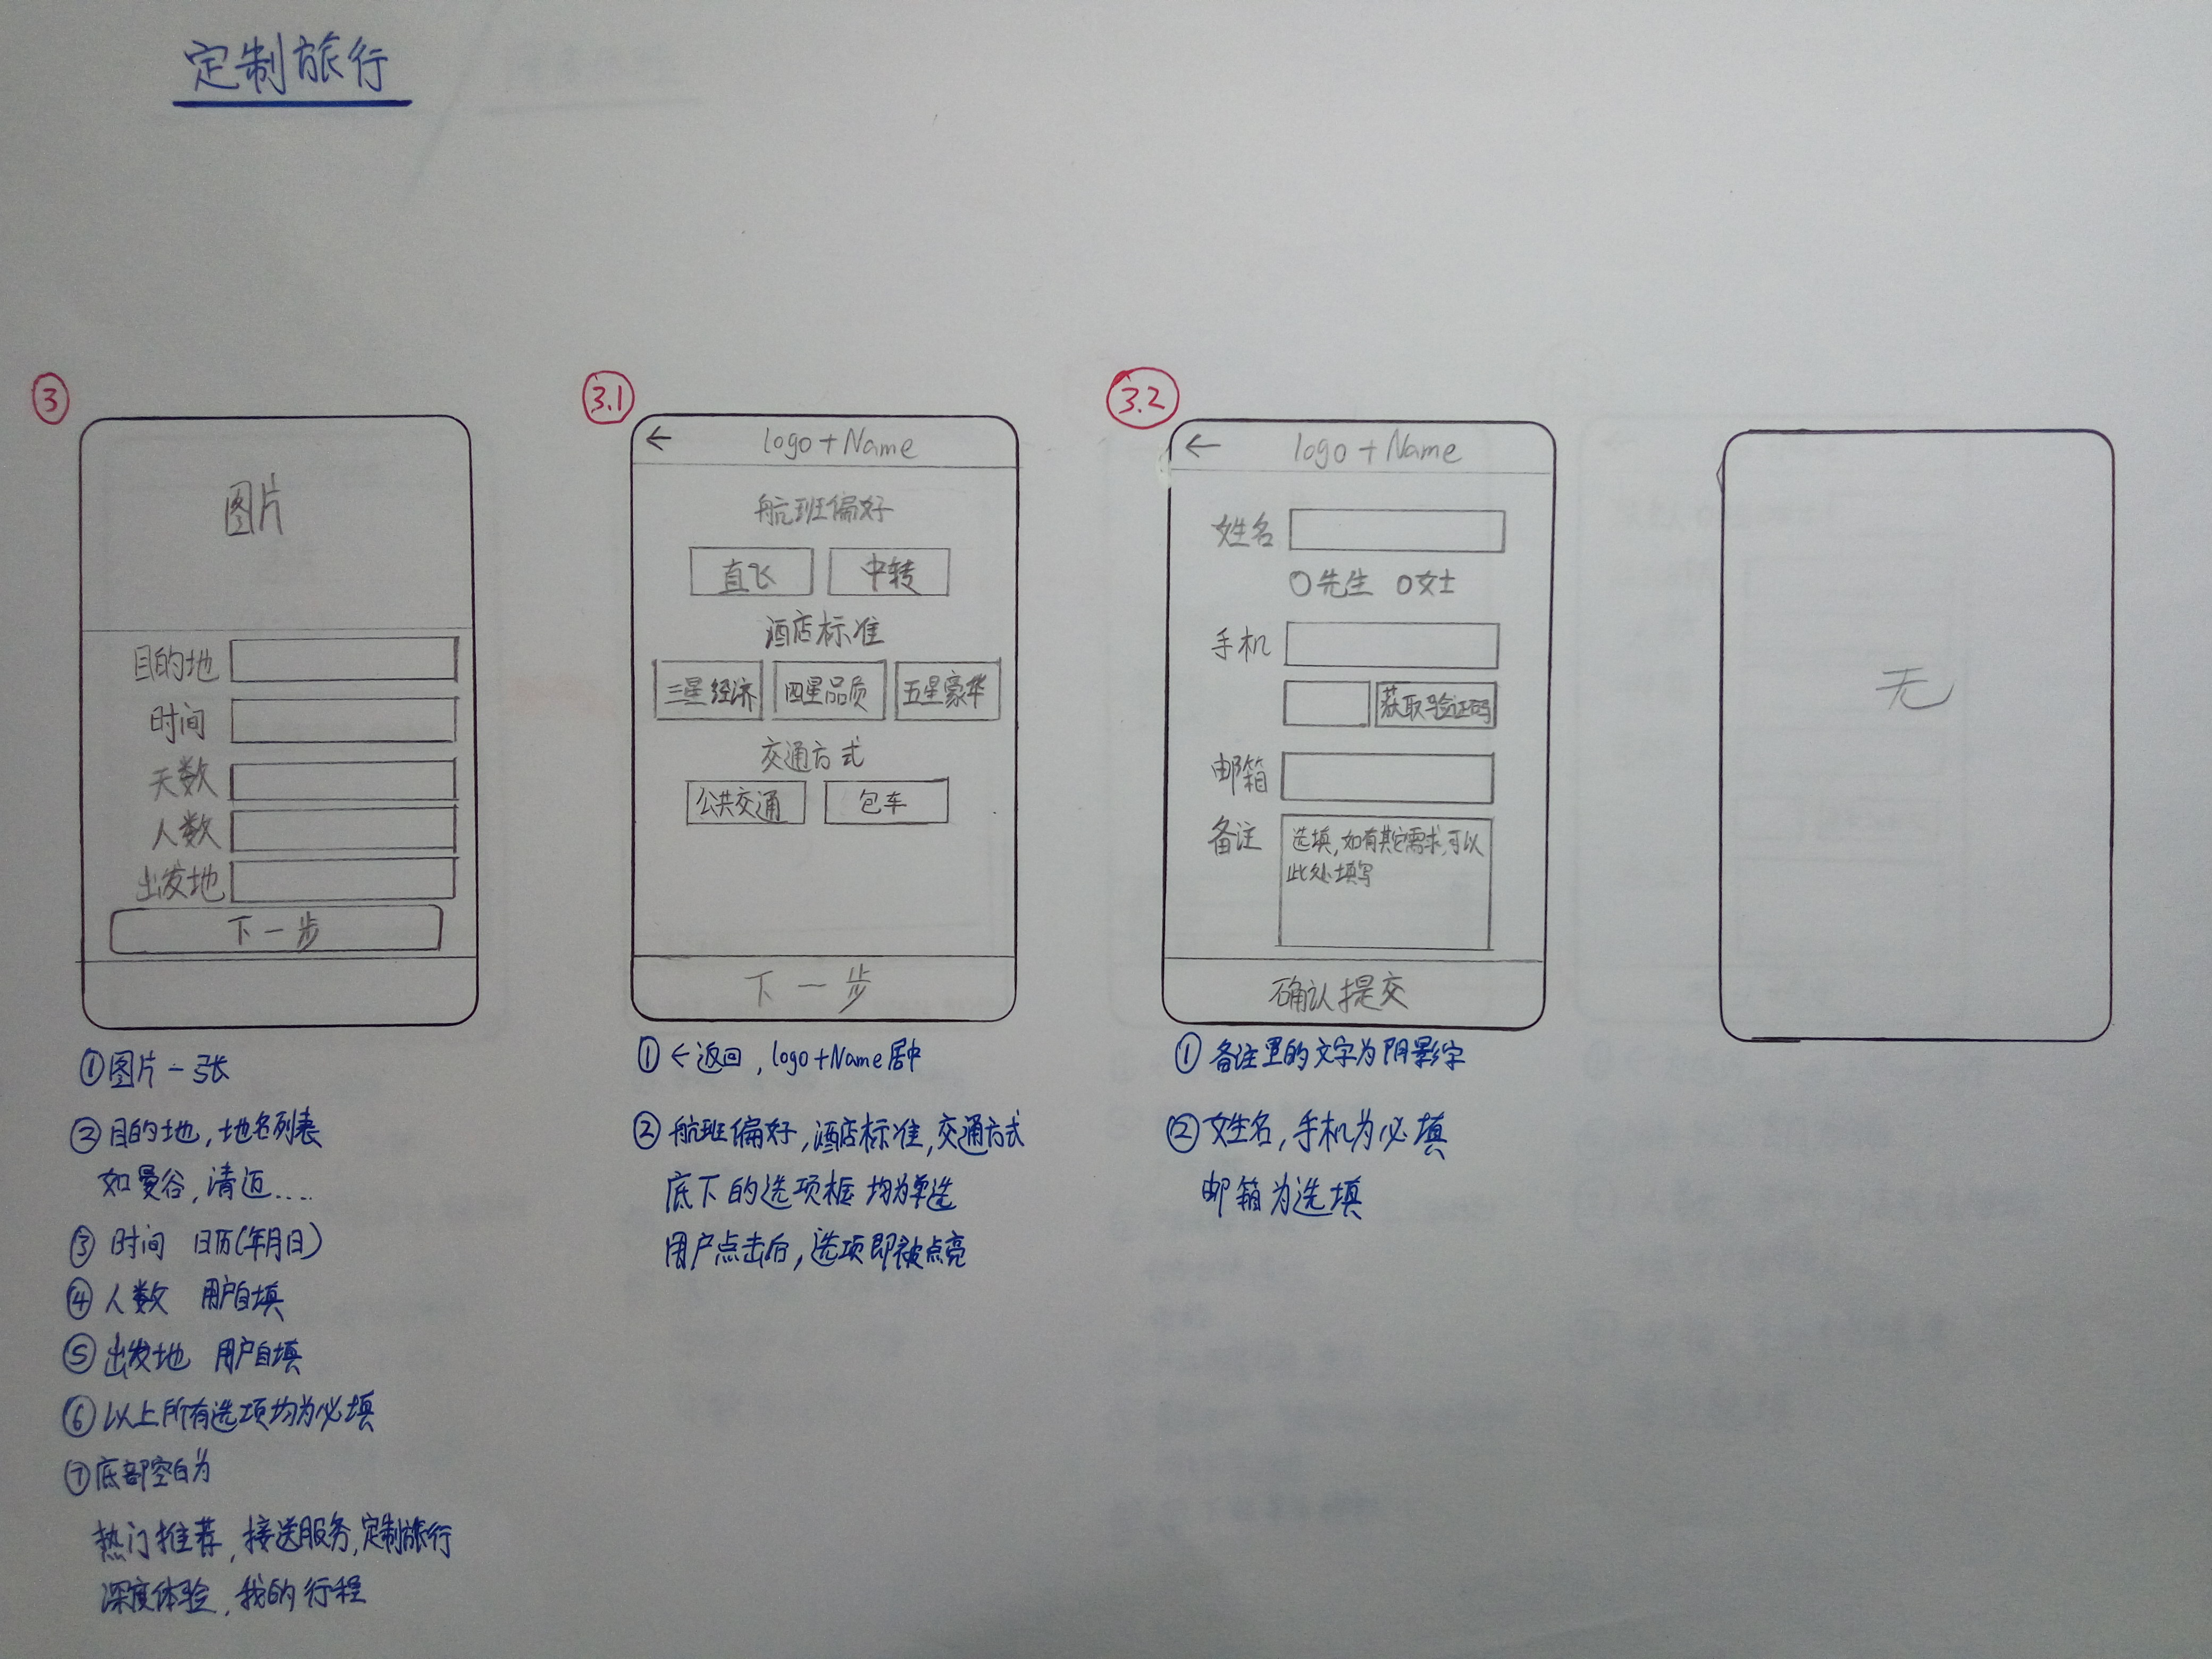 定制旅行
3
图片
目的地
时间
天数
人数
出发地
下一步
①图片一张
②目的地,地名列表
如曼谷,清迈....
③时间 日历(年月日)
④人数 用户自填
⑤出发地 用户自填
⑥以上所有选项均为必填
⑦底部空白为
热门推荐,接送服务,定制旅行
深度体验,我的行程
3.1
← logo+Name
航班偏好
直飞 中转
酒店标准
三星经济 四星品质 五星豪华
交通方式
公共交通 包车
下一步
①←返回,logo+Name居中
②航班偏好,酒店标准,交通方式
底下的选项框均为单选
用户点击后,选项即被点亮
3.2
← logo+Name
姓名
○先生 ○女士
手机
获取验证码
邮箱
备注 选填,如有其它需求,可以
此处填写
确认提交
①备注里的文字为阴影字
②姓名,手机为必填
邮箱为选填
无